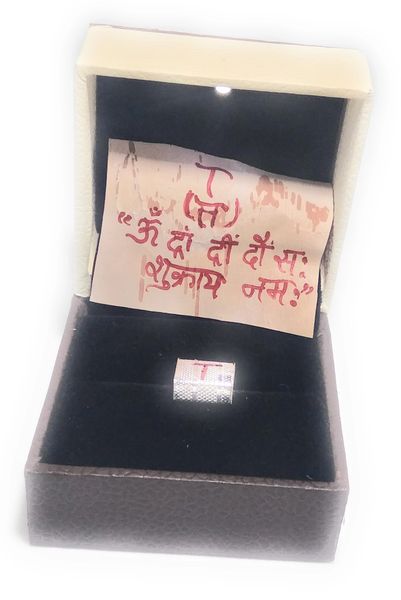 T
(त)
“ॐ द्रां द्रीं द्रौं सः
शुक्राय नमः”
T